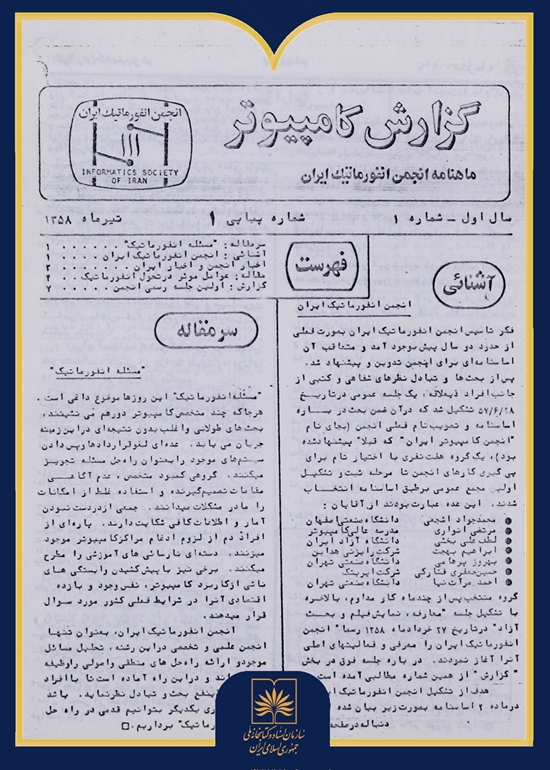 انجمن انفورماتیك ایران
INFORMATICS SOCIETY
OF IRAN
گزارش کامپیوتر
ماهنامه انجمن انفورماتیك ایران
سال اول - شماره ۱
شماره پیاپی ۱
تیرماه ۱۳۵۸
فهرست
سرمقاله : "مسئله انفورماتیك" . . . . . ۱
آشنائی : انجمن انفورماتیك ایران . . . . ۱
اخبار انجمن و اخبار ایران . . . . ۲
مقاله : عوامل موثر درتحول انفورماتیك . . ۲
گزارش : اولین جلسه رسمی انجمن . . . . ۷
آشنائی
انجمن انفورماتیك ایران
فکر تاسیس انجمن انفورماتیك ایران بصورت فعلی
از حدود دو سال پیش بوجود آمد و متعاقب آن
اساسنامه‌ای برای انجمن تدوین و پیشنهاد شد.
پس از بحث‌ها و تبادل نظرهای شفاهی و کتبی از
جانب افراد ذیعلاقه، جلسه عمومی درتاریخ
۵۷/۶/۲۸ تشکیل شد که درآن ضمن بحث در بساره
اساسنامه و تصویب نام فعلی انجمن (بجای نام
"انجمن کامپیوتر ایران" که قبلا" پیشنهادشده
بود)، یک گروه هفت نفری با اختیار تام برای
پی‌گیری کارهای انجمن تا مرحله ثبت و تشکیل
اولین مجمع عمومی برطبق اساسنامه انتخساب
شدند. این عده عبارت بودند از آقایان :
● محمدجواد اشجعی دانشگاه صنعتی اصفهان
● مرتضی انواری مدرسه عالی کامپیوتر
● لطفعلی بخشی دانشگاه آزاد ایران
● ابراهیم بهجت شرکت رایزنی هداین
● بهروز پرهامی دانشگاه صنعتی تهران
● حسین جعفری فشارکی شرکت ایزیتک
● احمد مرآت نیا دانشگاه صنعتی تهران
گروه منتخب پس از چندماه کار مداوم، بالاخره
با تشکیل جلسه "معارفه، نمایش فیلم و بحث
آزاد" درتاریخ ۲۷ خردادماه ۱۳۵۸ رسما" انجمن
انفورماتیك ایران را معرفی و فعالیتهای اصلی
آنرا آغاز نمودند. در باره جلسه فوق در بخش
"گزارش" از همین شماره مطالبی آمده است.
هدف از تشکیل انجمن انفورماتیك
درماده ۲ اساسنامه بصورت زیر بیان شده
دنباله درصفحه
سرمقاله
"مسئله انفورماتیك"
"مسئله انفورماتیك" این روزها موضوع داغی است.
هرجا که چند متخصص کامپیوتر دورهم می نشینند،
بحث‌های طولانی و اغلب بدون نتیجه‌ای دراین زمینه
جریان می یابد. عده‌ای لغوقراردادها و پس دادن
سیستم‌های موجود را بعنوان راه حل مسئله تجویز
میکنند. گروهی کمبود متخصص، عدم آگاهی
مقامات تصمیم گیرنده و استفاده غلط از امکانات
را مادر مشکلات میدانند. جمعی ازدردست نبودن
آمار و اطلاعات کافی شکایت دارند. پاره‌ای از
افراد دم از لزوم ادغام مراکز کامپیوتر موجود
میزنند. دسته‌ای نارسائی های آموزشی را مطرح
میکنند. برخی نیز با پیش کشیدن وابستگی هسای
ناشی ازکاربرد کامپیوتر، نفس وجود و بازده
اقتصادی آنرا در شرایط فعلی کشور مورد سوال
قرار میدهند.
انجمن انفورماتیك ایران، بعنوان تنهسا
انجمن علمی و تخصصی دراین رشته، تحلیل مسائل
موجود و ارائه راه حل های منطقی و اصولی را وظیفه
و دراین راه آماده است تا با افراد
ذینفع بحث و تبادل نظر نماید. باشد
یاری یکدیگر بتوانیم قدمی در راه حل
انفورماتیك" برداریم. □
سازمان اسناد و کتابخانه ملی
جمهوری اسلامی ایران